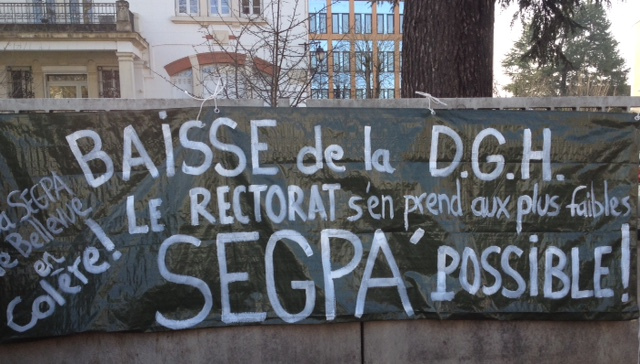 BAiSSE de la D.G.H.
LE RECTORAT s'en prend aux plus faibles
SEGPA' POSSIBLE!
a SEGPA
de Bellevue
en
Colère!